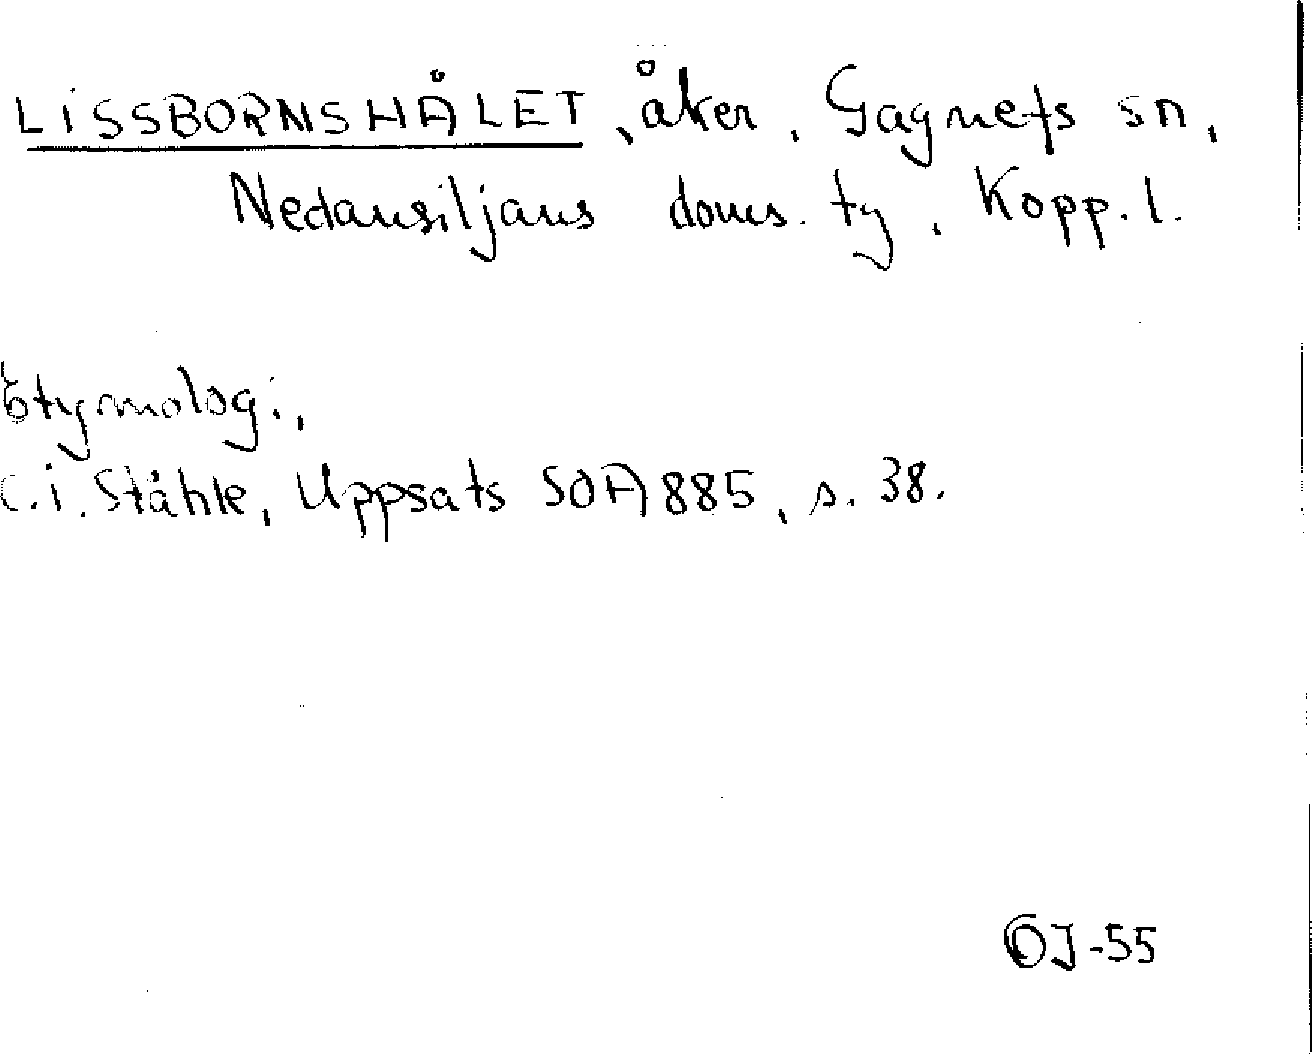 LISSBORNSHÅLET, åker, Gagnefs sn,
Nedansiljans doms. tg, Kopp. l.
Etymologi,
C.I. Ståhle, Uppsats SOA 885, s. 38.
OJ-55